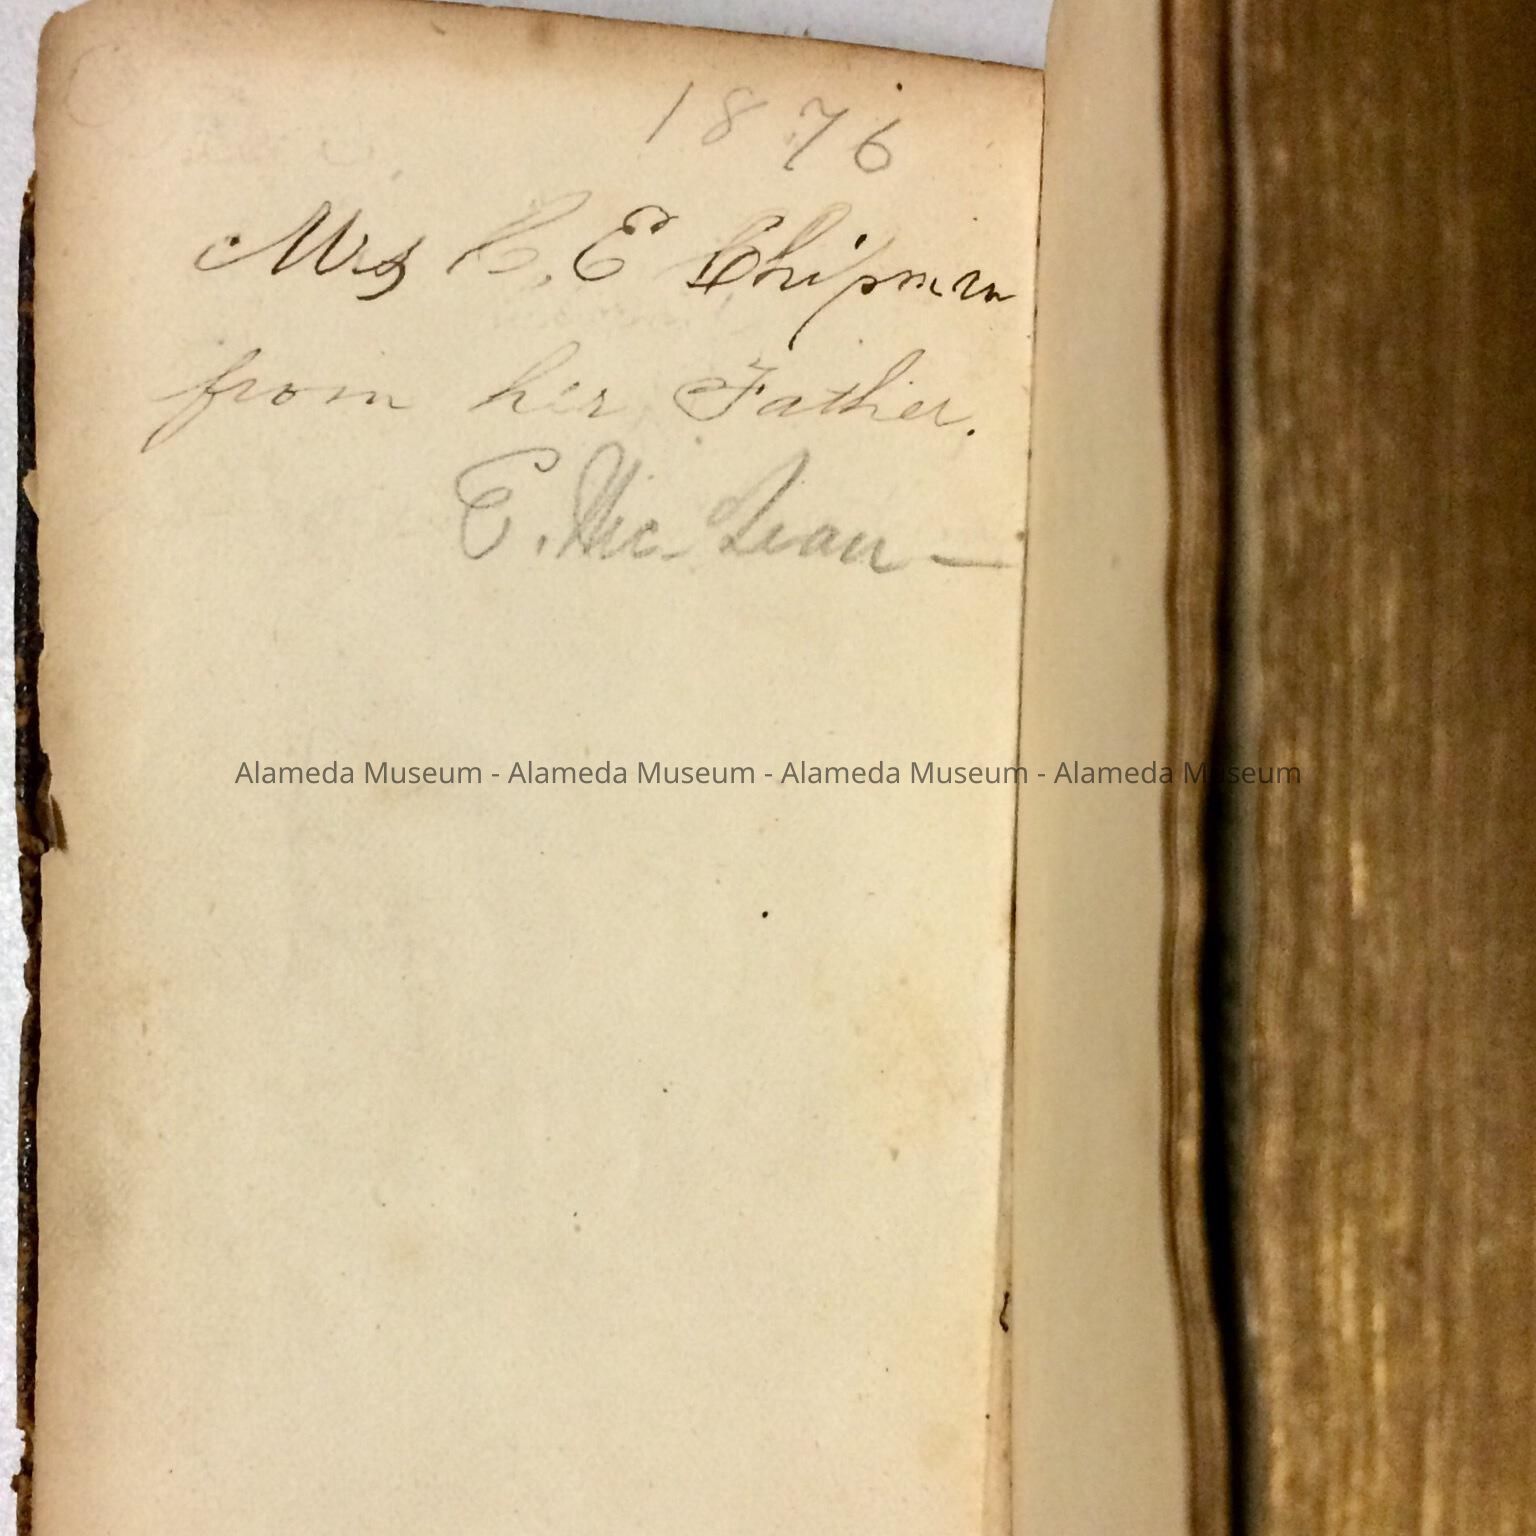 1876
Mrs C. E Chipman
from her Father.
E. Mc Lean —
Alameda Museum - Alameda Museum - Alameda Museum - Alameda Museum